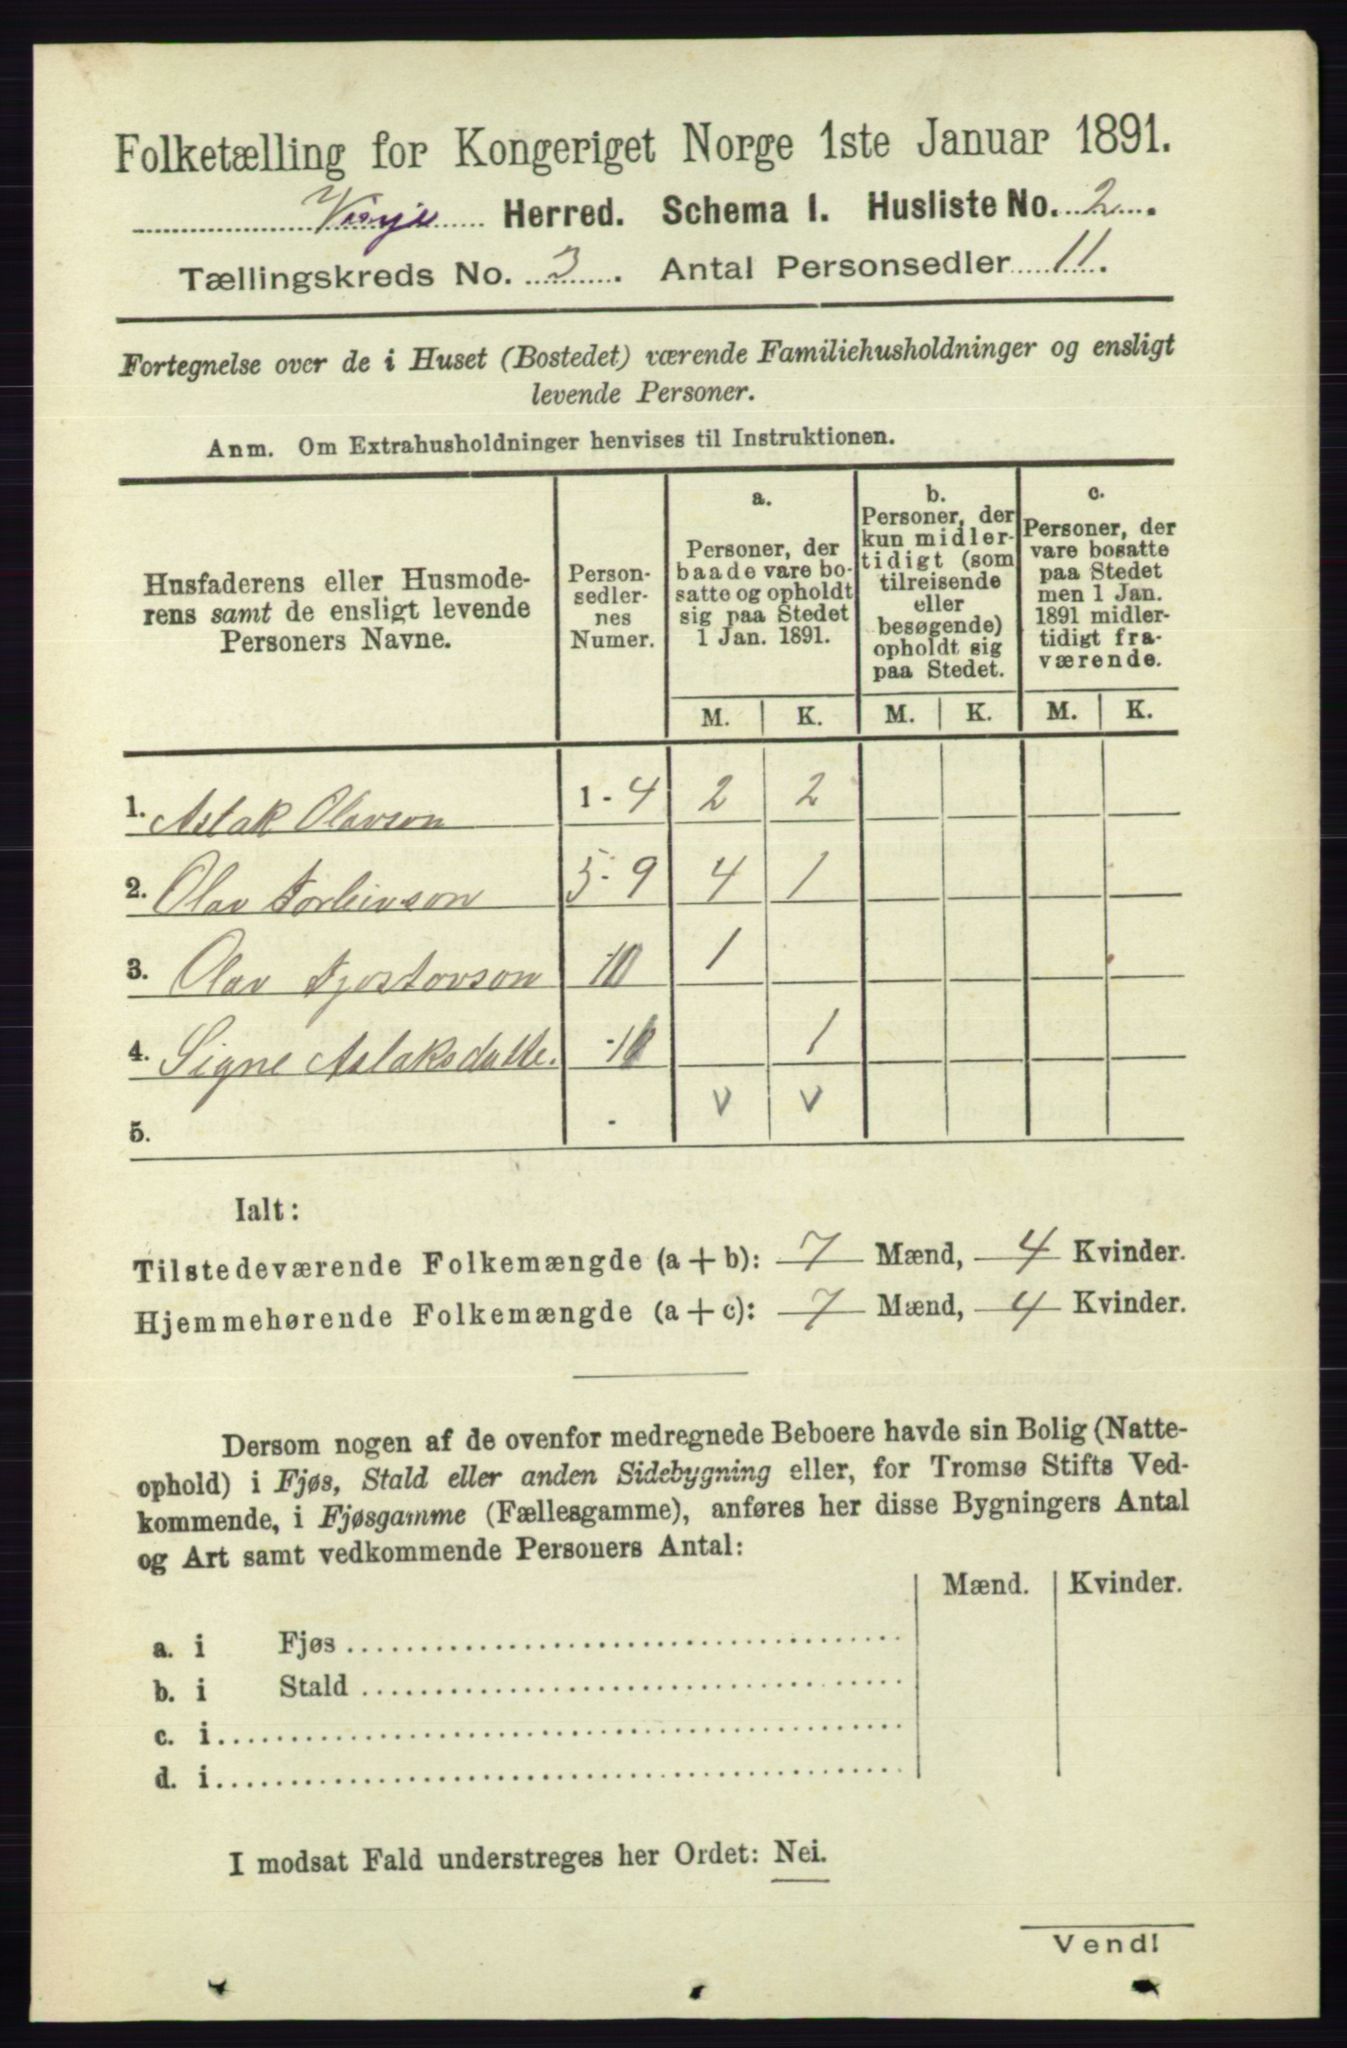 Folketælling for Kongeriget Norge 1ste Januar 1891.
Herred. Schema I. Husliste No. 2.
Tællingskreds No. 3. Antal Personsedler 11.
Fortegnelse over de i Huset (Bostedet) værende Familiehusholdninger og ensligt
levende Personer.
Anm. Om Extrahusholdninger henvises til Instruktionen.
Husfaderens eller Husmode-
rens samt de ensligt levende
Personers Navne.
Person-
sedler-
nes
Numer.
a.
Personer, der
baade vare bo-
satte og opholdt
sig paa Stedet
1 Jan. 1891.
b.
Personer, der
kun midler-
tidigt (som
tilreisende
eller
besøgende)
opholdt sig
paa Stedet.
c.
Personer, der
vare bosatte
paa Stedet
men 1 Jan.
1891 midler-
tidigt fra-
værende.
M. K. M. K. M. K.
1. Aslak Olavson 1 - 4 2 2
2. Olav Torleivson 5 - 9 4 1
3. Olav Gjostovson 10 1
4. Signe Aslaksdatte. - 11 1
5. - v v
Ialt:
Tilstedeværende Folkemængde (a + b): 7 Mænd, 4 Kvinder.
Hjemmehørende Folkemængde (a + c): 7 Mænd, 4 Kvinder.
Dersom nogen af de ovenfor medregnede Beboere havde sin Bolig (Natte-
ophold) i Fjøs, Stald eller anden Sidebygning eller, for Tromsø Stifts Ved-
kommende, i Fjøsgamme (Fællesgamme), anføres her disse Bygningers Antal
og Art samt vedkommende Personers Antal:
Mænd. Kvinder.
a. i Fjøs
b. i Stald
c. i
d. i
I modsat Fald understreges her Ordet: Nei.
Vend!